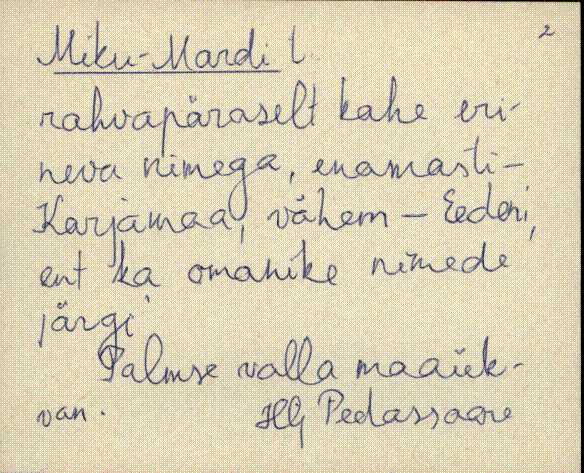 2
Miku-Mardi t.
rahvapäraselt kahe eri-
neva nimega, enamasti -
Karjamaa, vähem - Eedeni,
ent ka omanike nimede
järgi.
Palmse valla maaük-
van. HG Pedassaare